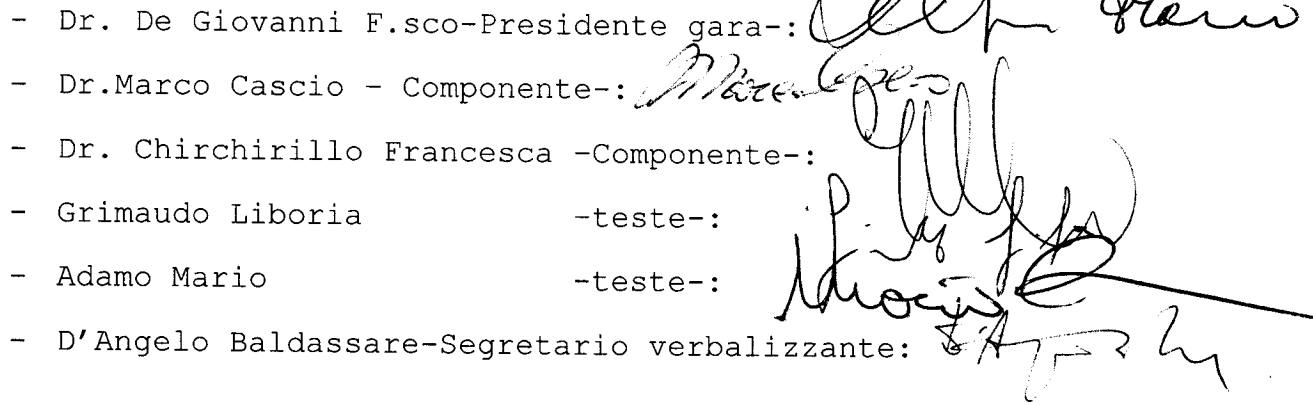 - Dr. De Giovanni F.sco-Presidente gara-:
- Dr.Marco Cascio - Componente-:
- Dr. Chirchirillo Francesca -Componente-:
- Grimaudo Liboria -teste-:
- Adamo Mario -teste-:
- D'Angelo Baldassare-Segretario verbalizzante: